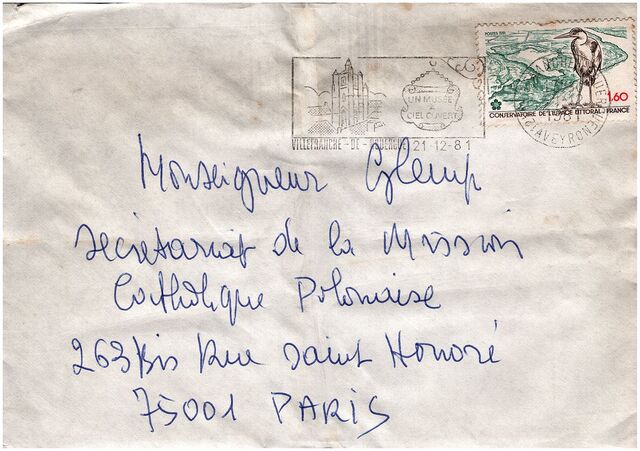 POSTES 1981
1.60
CONSERVATOIRE DE L'ESPACE LITTORAL-FRANCE
UN MUSÉE
A
CIEL OUVERT
VILLEFRANCHE-DE-ROUERGUE 21-12-81
1981
AVEYRON
Monseigneur Glemp
Secrétariat de la Mission
Catholique Polonaise
263 Bis Rue Saint Honoré
75001 PARIS